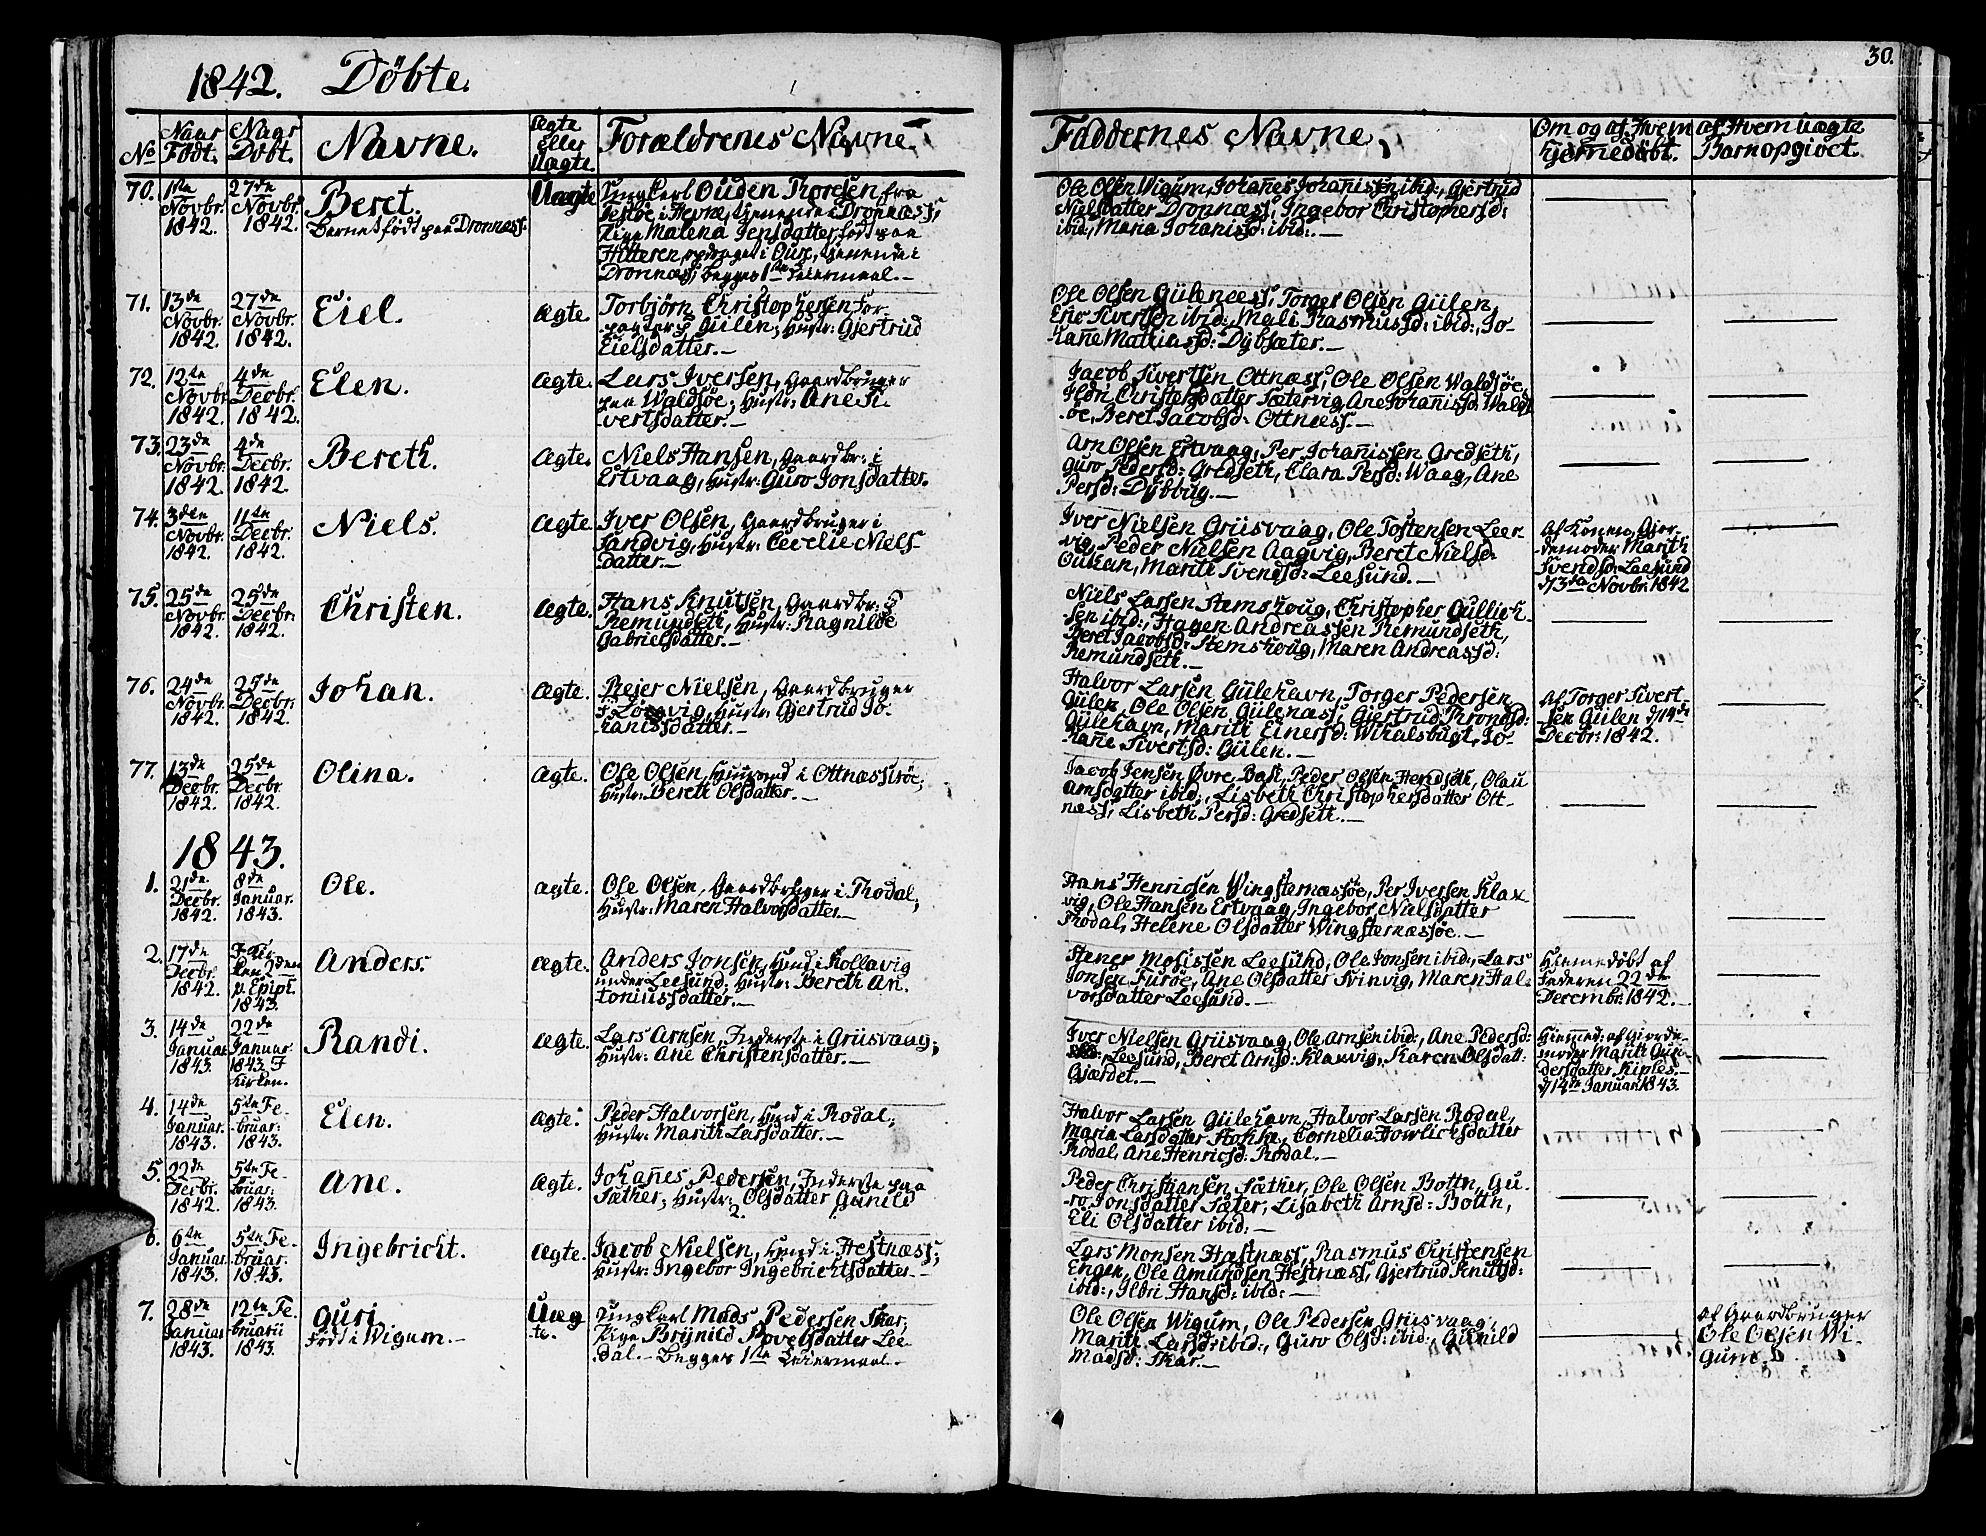 30.
1842. Döbte.
No
Naar Födt.
Naar Döbt.
Navne.
Ægte eller Uægte
Forældrenes Navne
Faddernes Navne,
Om og af Hvem hjemedöbt.
af Hvem Uægte Barn opgivet.
70. 1ste Novbr. 1842. 27de Novbr. 1842.
Beret.
Barnet födt paa Dronnæss.
Uægte
Ungkarl Ouden Thoresen fra
i Hevne, tjenende i Dronnæss,
Pige Malena Jensdatter födt paa
Hitteren, opdraget i Oure, tjenende i
Dronnæs; begges 1ste Leiermaal.
Ole Olsen Wigum, Johannes Johanissen ibid:, Gjertrud
Nielsdatter Dronnæss, Ingebor Christophersd:
ibid:, Maria Johanisd: ibid:.
71. 13de Novbr. 1842. 27de Novbr. 1842.
Eiel.
Ægte.
Torbjörn Christophersen For-
pagter p Gülen; Hustr: Gjertrud
Eielsdatter.
Ole Olsen Gülenæss, Torger Olsen Gülen,
Eric Sivertsen ibid:, Mali Rasmussd: ibid:, Jo-
hanne Mathiasd: Dybsæter.
72. 12te Novbr. 1842. 4de Decbr. 1842.
Elen.
Ægte.
Lars Iversen, Gaardbruger
paa Waldsöe; Hustr: Ane Si-
vertsdatter.
Jacob Sivertsen Ottnæss, Ole Olsen Waldsöe,
Ildri Christensdatter Sætervig, Ane Johanisd: Walds
öe, Beret Jacobsd: Ottnæss.
73. 23de Novbr. 1842. 4de Decbr. 1842.
Bereth.
Ægte.
Niels Hansen, Gaardbr: i
Ertvaag, Hustr: Guro Jonsdatter.
Arn Olsen Ertvaag, Per Johanissen Gredseth,
Guro Pedersd: Gredseth, Clara Persd: Waag, Ane
Persd: Dybbug.
74. 3den Novbr. 1842. 11te Decbr. 1842.
Niels.
Ægte.
Iver Olsen, Gaardbruger i
Sandvig, Hustr: Cecelie Niels-
datter.
Iver Nielsen Griisvaag, Ole Tostensen Leer-
vig, Peder Nielsen Aagvig, Beret Nielsd:
Marith Svendsd: Leesund.
Af Konen, Gjor-
demoder Marith
Svendsd: Leesund
d/3de Novbr. 1842
75. 25de Novbr. 1842. 25de Decbr. 1842.
Christen.
Ægte.
Hans Knutsen, Gaardbr: i
Remundseth, Hustr: Ragnilde
Gabrielsdatter.
Niels Larsen Stemshoug, Christopher Gullich-
sen ibid:, Hagen Andreassen Remundseth,
Beret Jacobsd: Stemshoug, Maren Andreassd:
Remundseth.
76. 24de Novbr. 1842. 25de Decbr. 1842.
Johan.
Ægte.
Reier Nielsen, Gaardbruger
i Hustr: Gjertrud Jo-
hanisdatter.
Halvor Larsen Gülehavn, Torger Pedersen
Gülen, Ole Olsen Gülenæss, Gjertrud Thronsd:
Gülehavn, Marith Einersd: Wihalsbugt, Jo-
hanne Sivertsd: Gülen.
Af Torger Sivert-
sen Gülen d/14de
Decbr: 1842.
77. 13de Decbr. 1842. 25de Decbr. 1842.
Olina.
Ægte.
Ole Olsen, Huusmand i Ottnæssöe;
Hustr: Bereth Olsdatter.
Jacob Jensen Øvre Bast, Peder Olsen Hendseth, Olau
Arnsdatter ibid:, Lisbeth Christophersdatter Ott-
næss, Lisbeth Persd: Gredseth.
1843.
1. 21de Decbr. 1842. 8de Januar. 1843.
Ole.
ægte.
Ole Olsen, Gaardbruger i Rodal,
Hustr: Maren Halvorsdatter.
Hans Henricsen Wingsternæssöe, Per Iversen Klax-
vig, Ole Hansen Ertvaag, Ingebor Nielsdatter
Rodal, Helene Olsdatter Wingsternæssöe.
2. 17de Decbr. 1842. I Kir-
ken 2den
p. Epipt.
1843.
Anders.
Ægte.
Anders Jonsen, Hmd i Kollavig
under Leesund; Hustr: Bereth An-
toniusdatter.
Stener Mosissen Leesund, Ole Jonsen ibid:, Lars
Jonsen Furöe, Ane Olsdatter Svinvig, Maren Hal-
vorsdatter Leesund.
Hiemedöbt af
Faderen 22de
Decembr. 1842.
3. 14de Januar 1843. 22de Januar. 1843 I Kirken.
Randi.
Ægte.
Lars Arnsen, Inderste i Griisvaag;
Hustr: Ane Christensdatter.
Iver Nielsen Griisvaag, Ole Arnsen ibid:, Ane Pedersd:
Leesund, Beret Arnsd: Klaxvig, Karen Olsdatt:
Gjærdet.
Hiemmed: af Giorde-
moder Marith Gun-
dersdatter Kiples.
d/14de Januar 1843.
4. 14de Januar. 1843. 5te Fe-
bruar: 1843.
Elen.
Ægte.
Peder Halvorsen, Hmd i Rodal;
Hustr: Marith Larsdatter.
Halvor Larsen Gülehavn, Halvor Larsen Rodal,
Maria Larsdatter Cornelia
Rodal, Ane Henricsd: Rodal.
5. 22de Decbr. 1842. 5te Fe-
bruar: 1843.
Ane.
Ægte.
Johannes Pedersen, Inderste paa
Sæther; Hustr: Olsdatter Gunild
2.
Peder Christiansen Sæther, Ole Olsen Bottn, Gu-
ro Jonsdatter Sæter, Lisabeth Arnsd: Bottn,
Eli Olsdatter ibid:.
6. 6te Januar. 1843. 5te Fe-
bruar. 1843.
Ingebricht.
Ægte.
Jacob Nielsen, Hmd i Hestnæss;
Hustr: Ingebor Ingebrichtsdatter.
Lars Monsen Hæstnæss, Rasmus Christensen
Engen, Ole Amundsen Hestnæss, Gjertrud Knutsd:
ibid:, Ildri Hansd: ibid:.
7. 28de Januar 1843. 12te Fe-
bruarii 1843.
Guri
Födt i Wigum.
Uæg
te.
Ungkarl Mads Pedersen Skar,
Pige Brynild Povelsdatter Lee-
dal.- Begges 1ste Leiermaal.
Ole Olsen Wigum, Ole Pedersen Griisvaag,
Marith Larsd: ibid:, Guro Olsd: ibid:, Gunild
Madsd: Skar.
af Gaardbruger
Ole Olsen Wi-
gum.